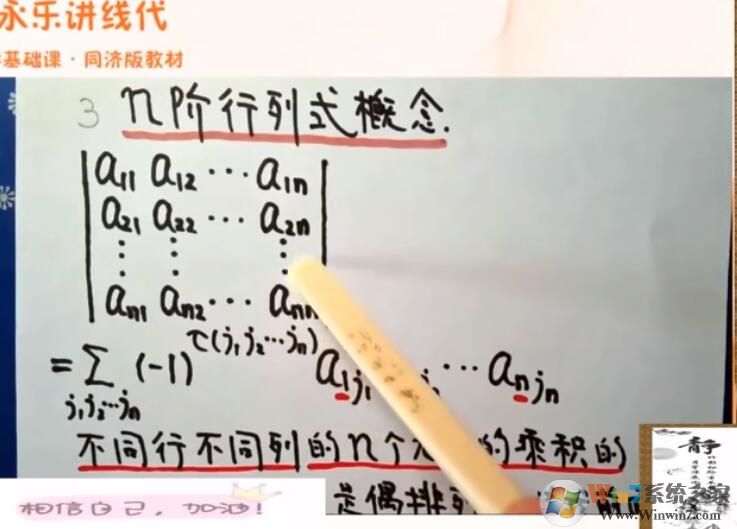 永乐讲线代
基础课·同济版教材
3 n阶行列式概念.
a11 a12 ⋯ a1n
a21 a22 ⋯ a2n
⋮ ⋮ ⋮
an1 an2 ⋯ ann
= ∑ (-1) τ(j1j2⋯jn) a1j1 ⋯ anjn
j1j2⋯jn
不同行不同列的n个 的乘积的
是偶排
静
相信自己，加油！
Win7系统之家
www.Winwin7.com